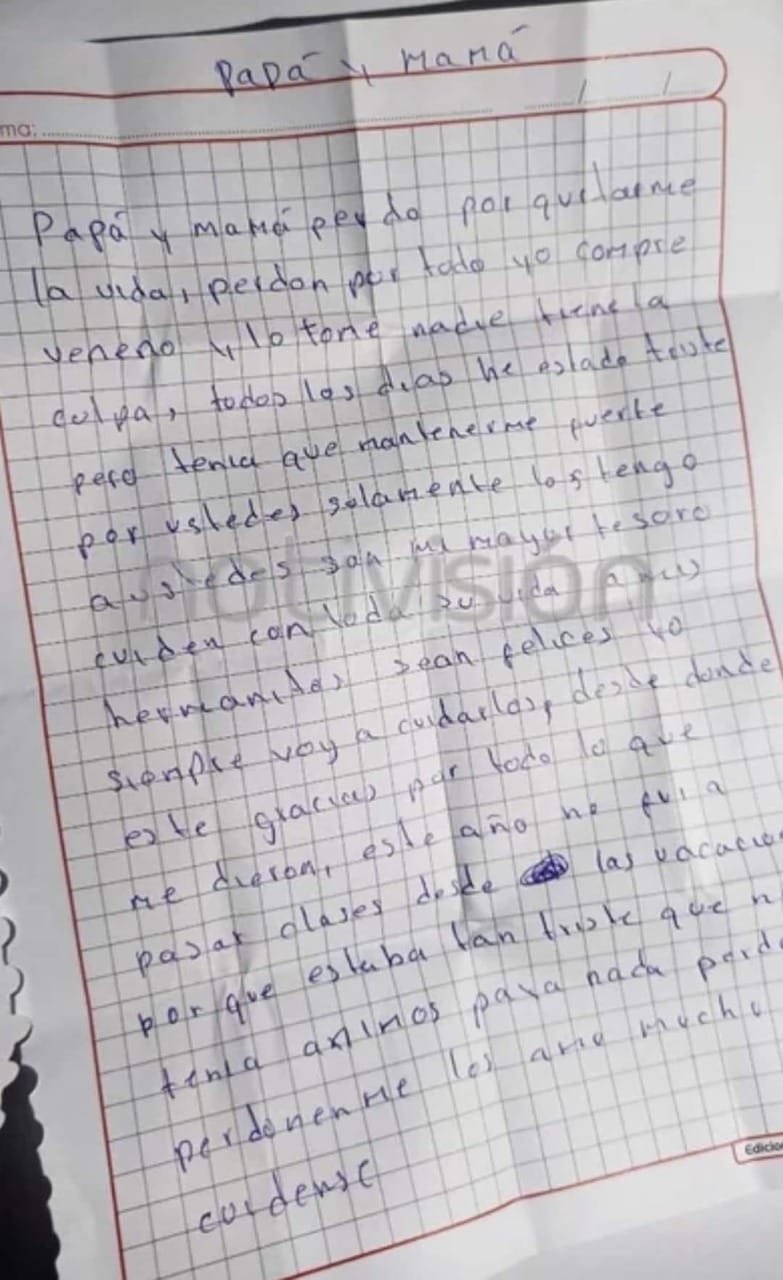 Papá y Mamá
ma:
Papá y mamá perdo por quitarme
la vida, perdon por todo yo compre
veneno y lo tomé nadie tiene la
culpa, todos los dias he estado triste
pero tenia que mantenerme puerte
por ustedes solamente los tengo
a ustedes son mi mayor tesoro
cuiden con toda su vida a mis
hermanitos sean felices yo
siempre voy a cuidarlos, desde donde
este gracias por todo lo que
me dieron, este año no fui a
pasar clases desde las vacacio
por que estaba tan triste que n
tenia animos para nada perdo
perdonenme los amo mucho
cuidense
notivisión
Edicio